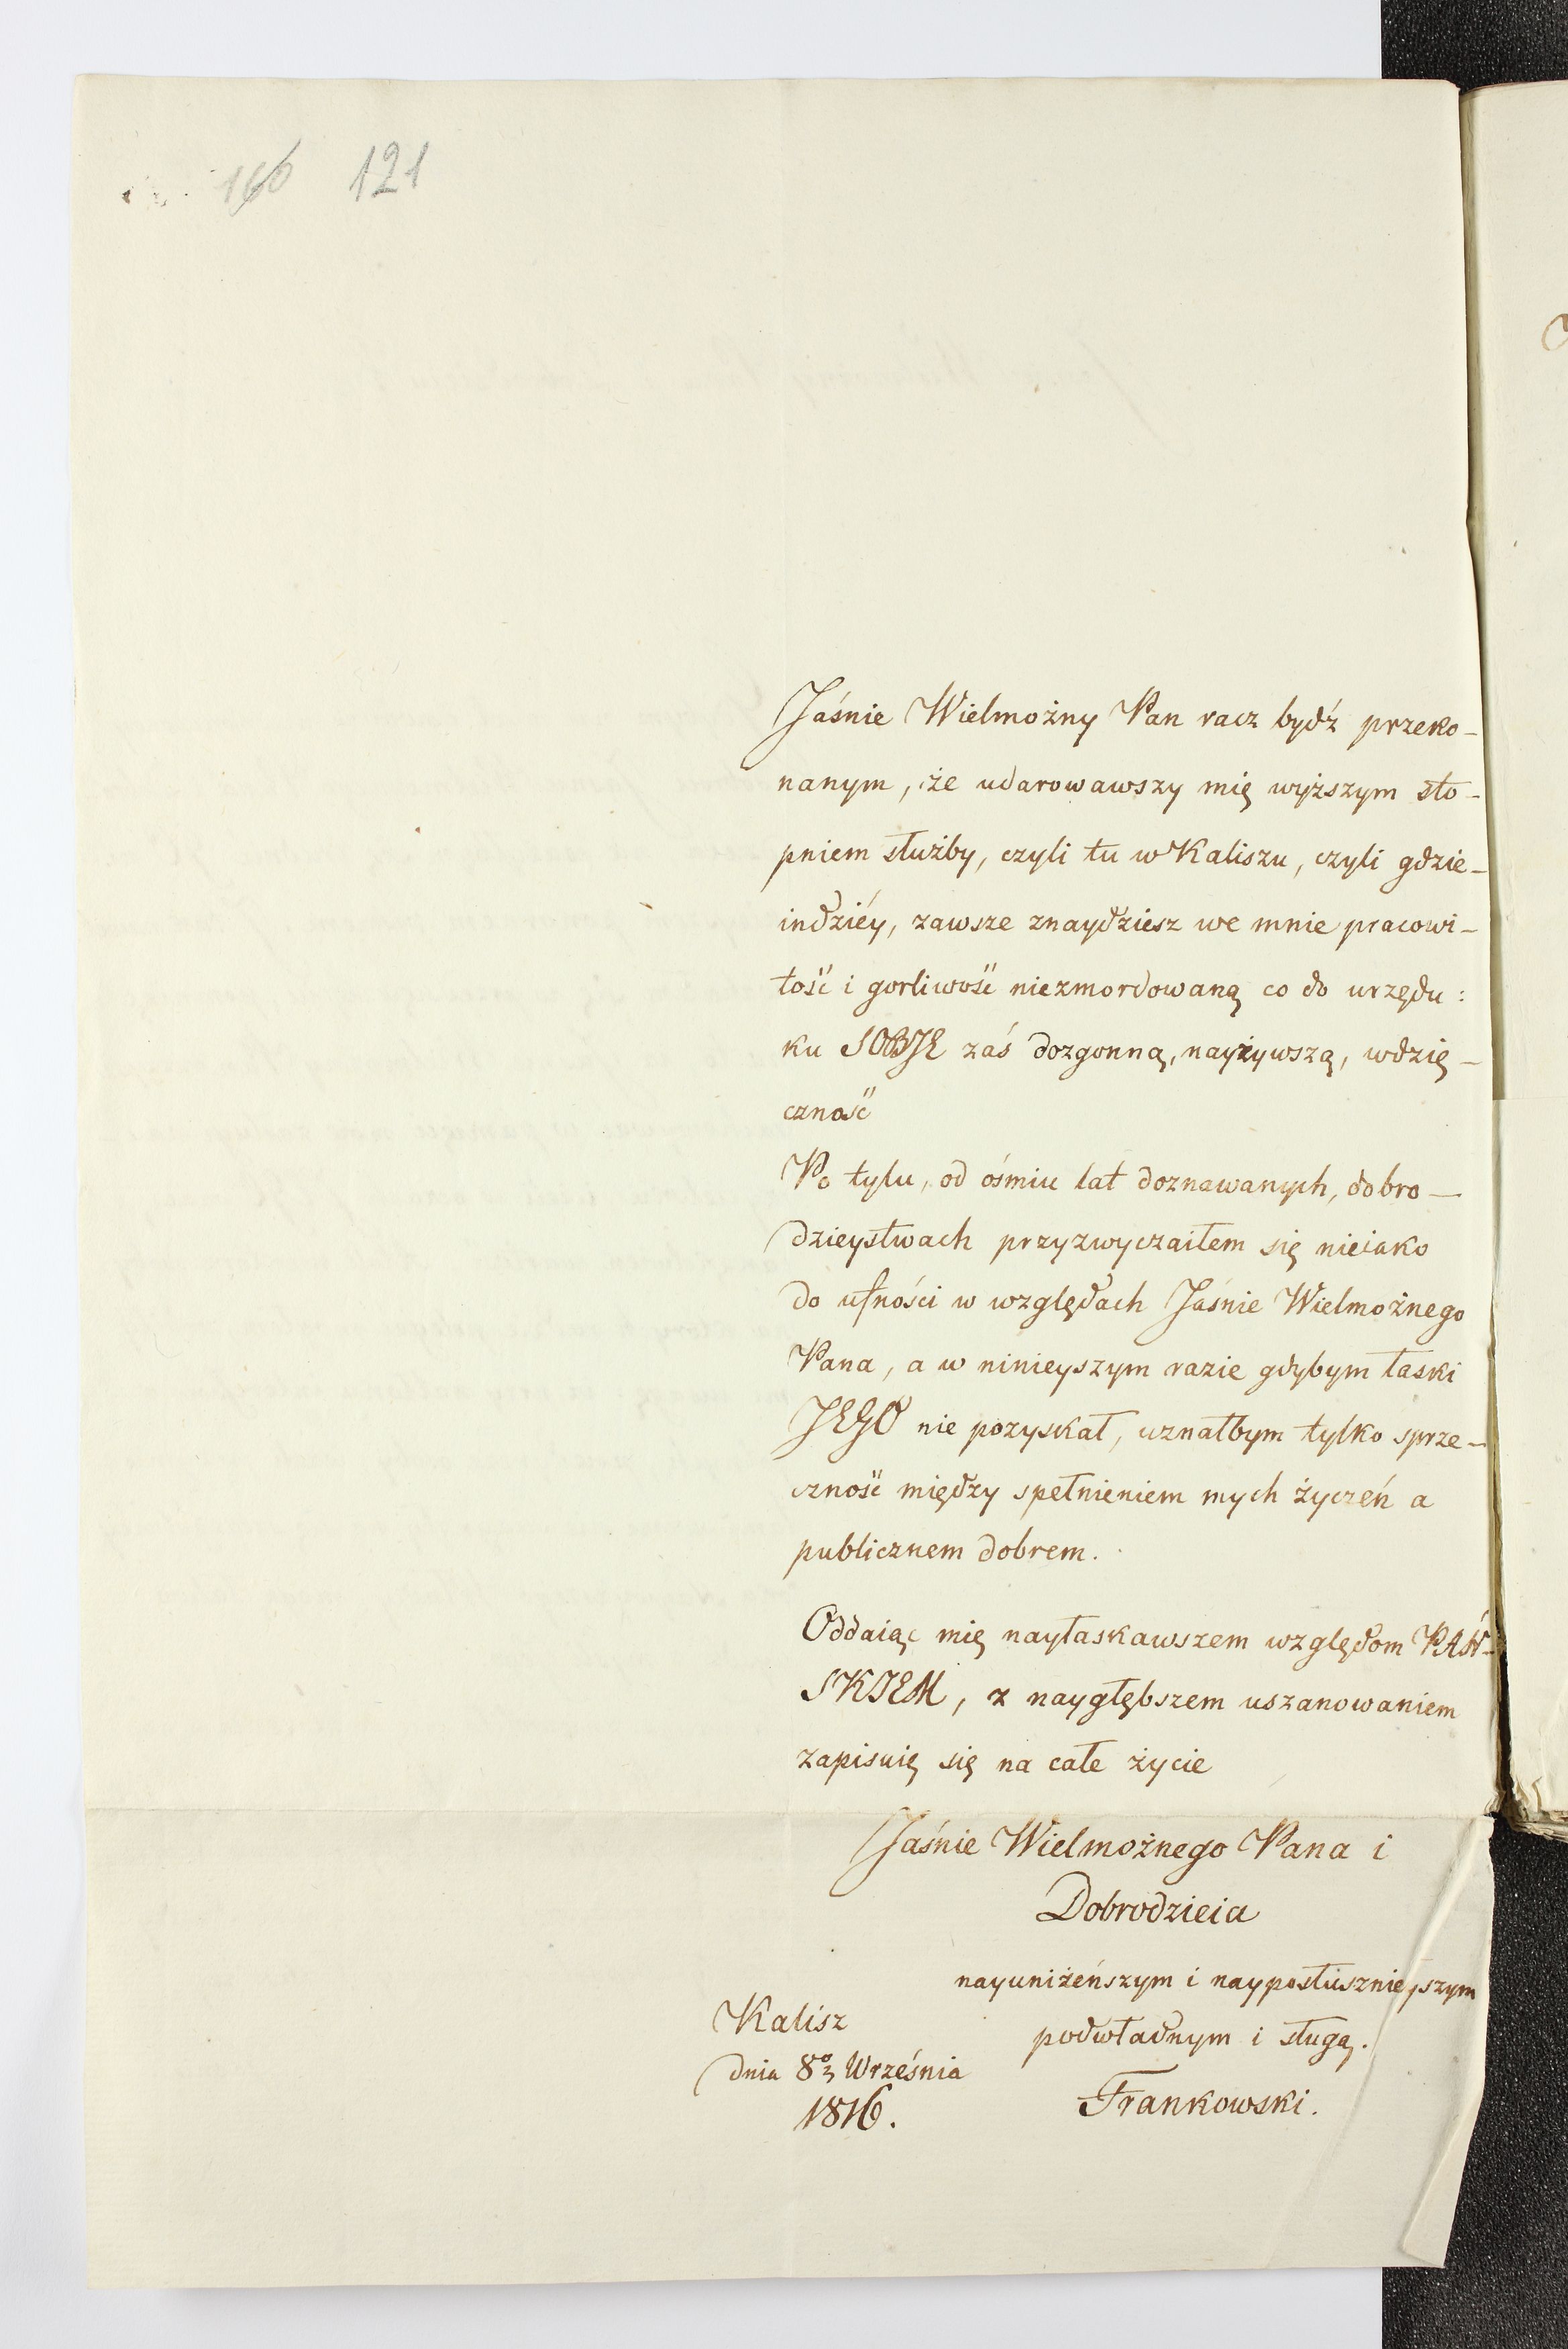 166 121
Jaśnie Wielmożny Pan racz bydź przeko-
nanym, że udarowawszy mię wyższym sto-
pniem służby, czyli tu w Kaliszu, czyli gdzie-
indziéy, zawsze znaydziesz we mnie pracowi-
tość i gorliwość niezmordowaną co do urzędu:
ku SOBJE zaś dozgonną, nayżywszą, wdzię-
czność
Po tylu, od ośmiu lat doznawanych, dobro-
dzieystwach przyzwyczaiłem się nieiako
do ufności w względach Jaśnie Wielmożnego
Pana, a w ninieyszym razie gdybym łaski
JEGO nie pozyskał, uznałbym tylko sprze-
czność między spełnieniem mych życzeń a
publicznem dobrem.
Oddaiąc mię nayłaskawszem względom PAŃ-
SKJEM, z naygłębszem uszanowaniem
zapisuię się na całe życie
Jaśnie Wielmożnego Pana i
Dobrodzieia
nayuniżeńszym i nayposłusznieyszym
podwładnym i sługą.
Frankowski.
Kalisz
dnia 8º Września
1816.